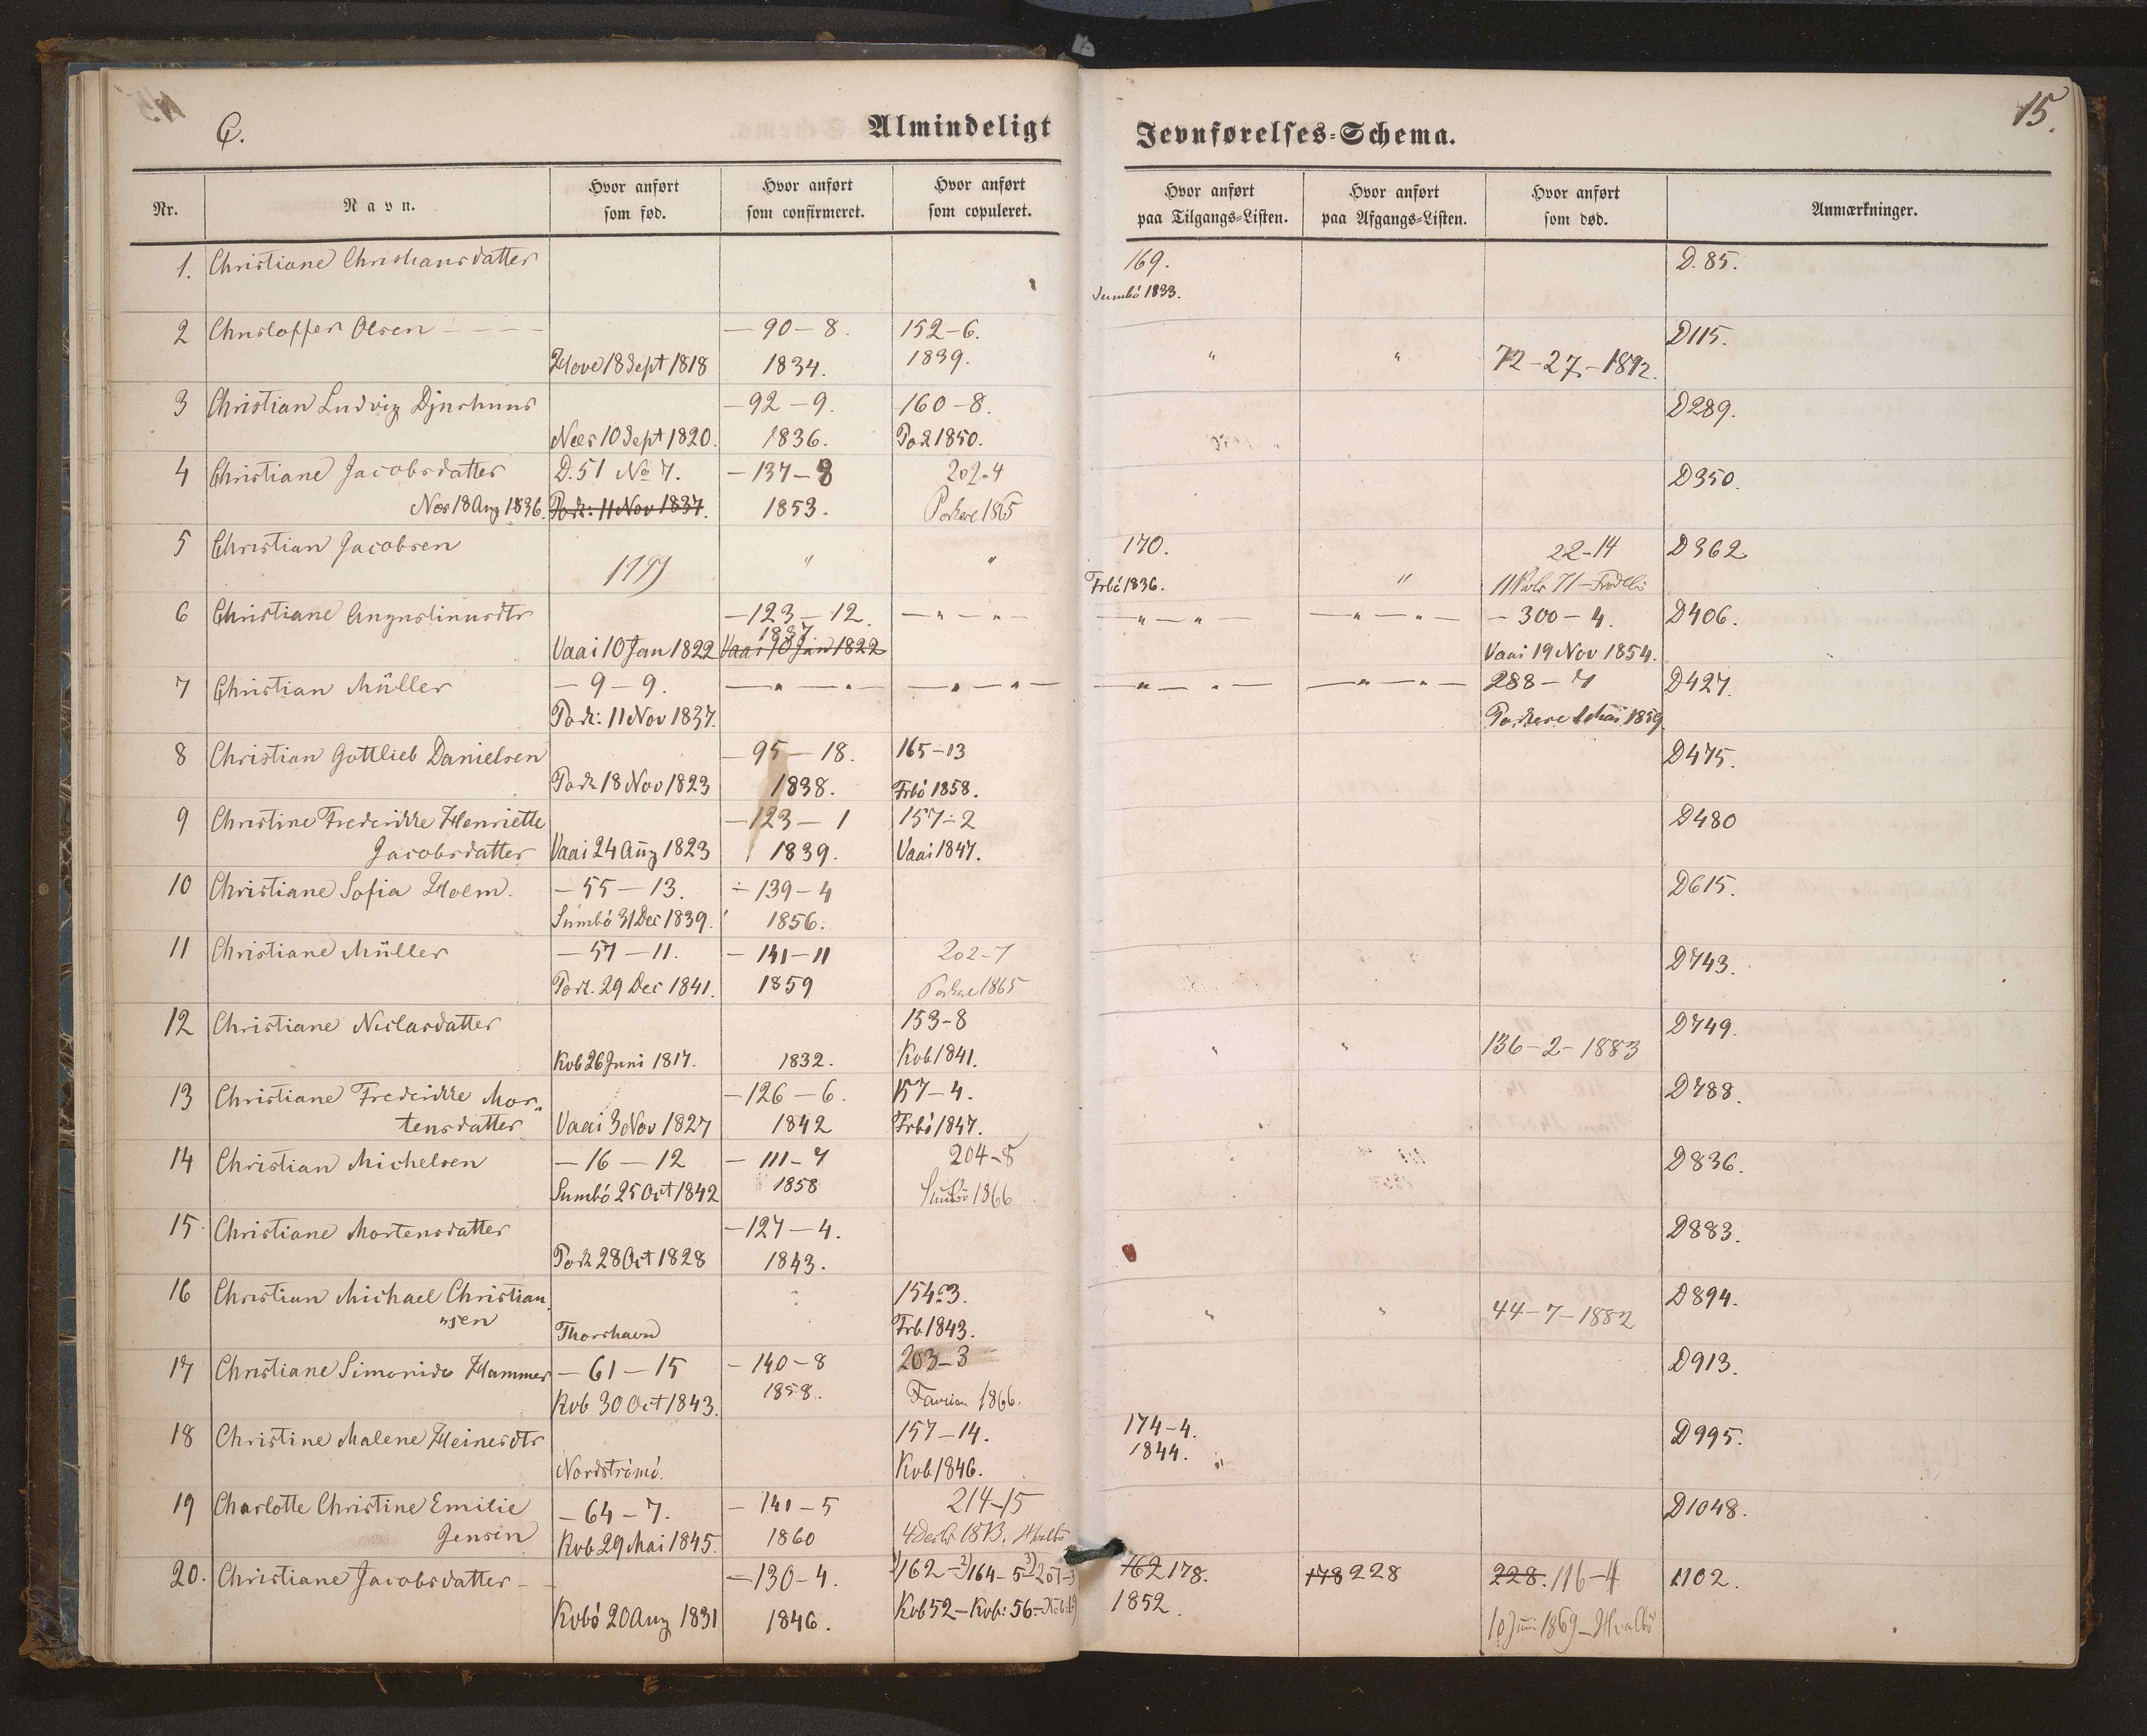 C.
Almindeligt Jevnførelses-Schema.
15.
Nr. Navn. Hvor anført som fød. Hvor anført som confirmeret. Hvor anført som copuleret. Hvor anført paa Tilgangs-Listen. Hvor anført paa Afgangs-Listen. Hvor anført som død. Anmærkninger.
1. Christiane Christiansdatter 169. D. 85.
Sumbö 1833.
2 Christoffer Olsen — 90 — 8. 152-6. D115.
Hove 18 Sept 1818 1834. 1839. " " 72-27-1892.
3 Christian Ludvig Djurhuus — 92 — 9. 160-8. D289.
Næs 10 Sept 1820. 1836. Po 2 1850.
4 Christiane Jacobsdatter D. 51 No 7. — 137 — 8 202-4 D350.
Næs 18 Aug 1836. Pork: 11 Nov 1837. 1853. Porkere 1865
5 Christian Jacobsen 170. 22-14 D362
1799 " " Frbö 1836. " 11 71 —
6 Christiane Augustinusdtr — 123 — 12. — " — " — — " — " — — " — " — — 300 — 4. D406.
1837
Vaai 10 Jan 1822 Vaai 10 Jan 1822 Vaai 19 Nov 1854.
7 Christian Müller — 9 — 9. — " — " — — " — " — — " — " — — " — " — 288 — 7 D427.
Pork: 11 Nov 1837. Porkere Mai 1859
8 Christian Gottlieb Danielsen — 95 — 18. 165-13 D475.
Pork 18 Nov 1823 1838. Frbö 1858.
9 Christine Frederikke Henriette — 123 — 1 157-2 D480
Jacobsdatter Vaai 24 Aug 1823 1839. Vaai 1847.
10 Christiane Sofia Holm. — 55 — 13. — 139 — 4 D615.
Sumbö 31 Dec 1839. 1856.
11 Christiane Müller — 57 — 11. — 141-11 202-7 D743.
Pork. 29 Dec 1841. 1859 Porkere 1865
12 Christiane Niclasdatter 153-8 D749.
Kvb 26 Juni 1817. 1832. Kvb 1841. " " 136-2-1883
13 Christiane Frederikke Mor- — 126 — 6. 157-4. D788.
tensdatter Vaai 3 Nov 1827 1842 Frbö 1847.
14 Christian Michelsen — 16 — 12 — 111-7 204-8 D836.
Sumbö 25 Oct 1842 1858 Sumbö 1866
15. Christiane Mortensdatter — 127 — 4. D883.
Pork 28 Oct 1828 1843.
16 Christian Michael Christian 154-3. D894.
sen Thorshavn Frb 1843. " " 44-7-1882
17 Christiane Simonide Hammer — 61 — 15 — 140-8 203-3 D913.
Kvb 30 Oct 1843. 1858. 1866.
18 Christine Malene Heinesdtr 157-14. 174-4. D995.
Nordströmö. Kvb 1846. 1844. "
19 Charlotte Christine Emilie — 64 — 7. — 141-5 214-15 D1048.
Jensen Kvb 29 Mai 1845. 1860 4 Decbr 1873. Hvalbö
20. Christiane Jacobsdatter — 130-4. 1)162- 2)164-5 3)207-3 162 178. 178 228 228. 116-4 1102.
Kvbö 20 Aug 1831 1846. Kvb 52 — Kvb: 56. 1852. 10 Juni 1869 — Hvalbö